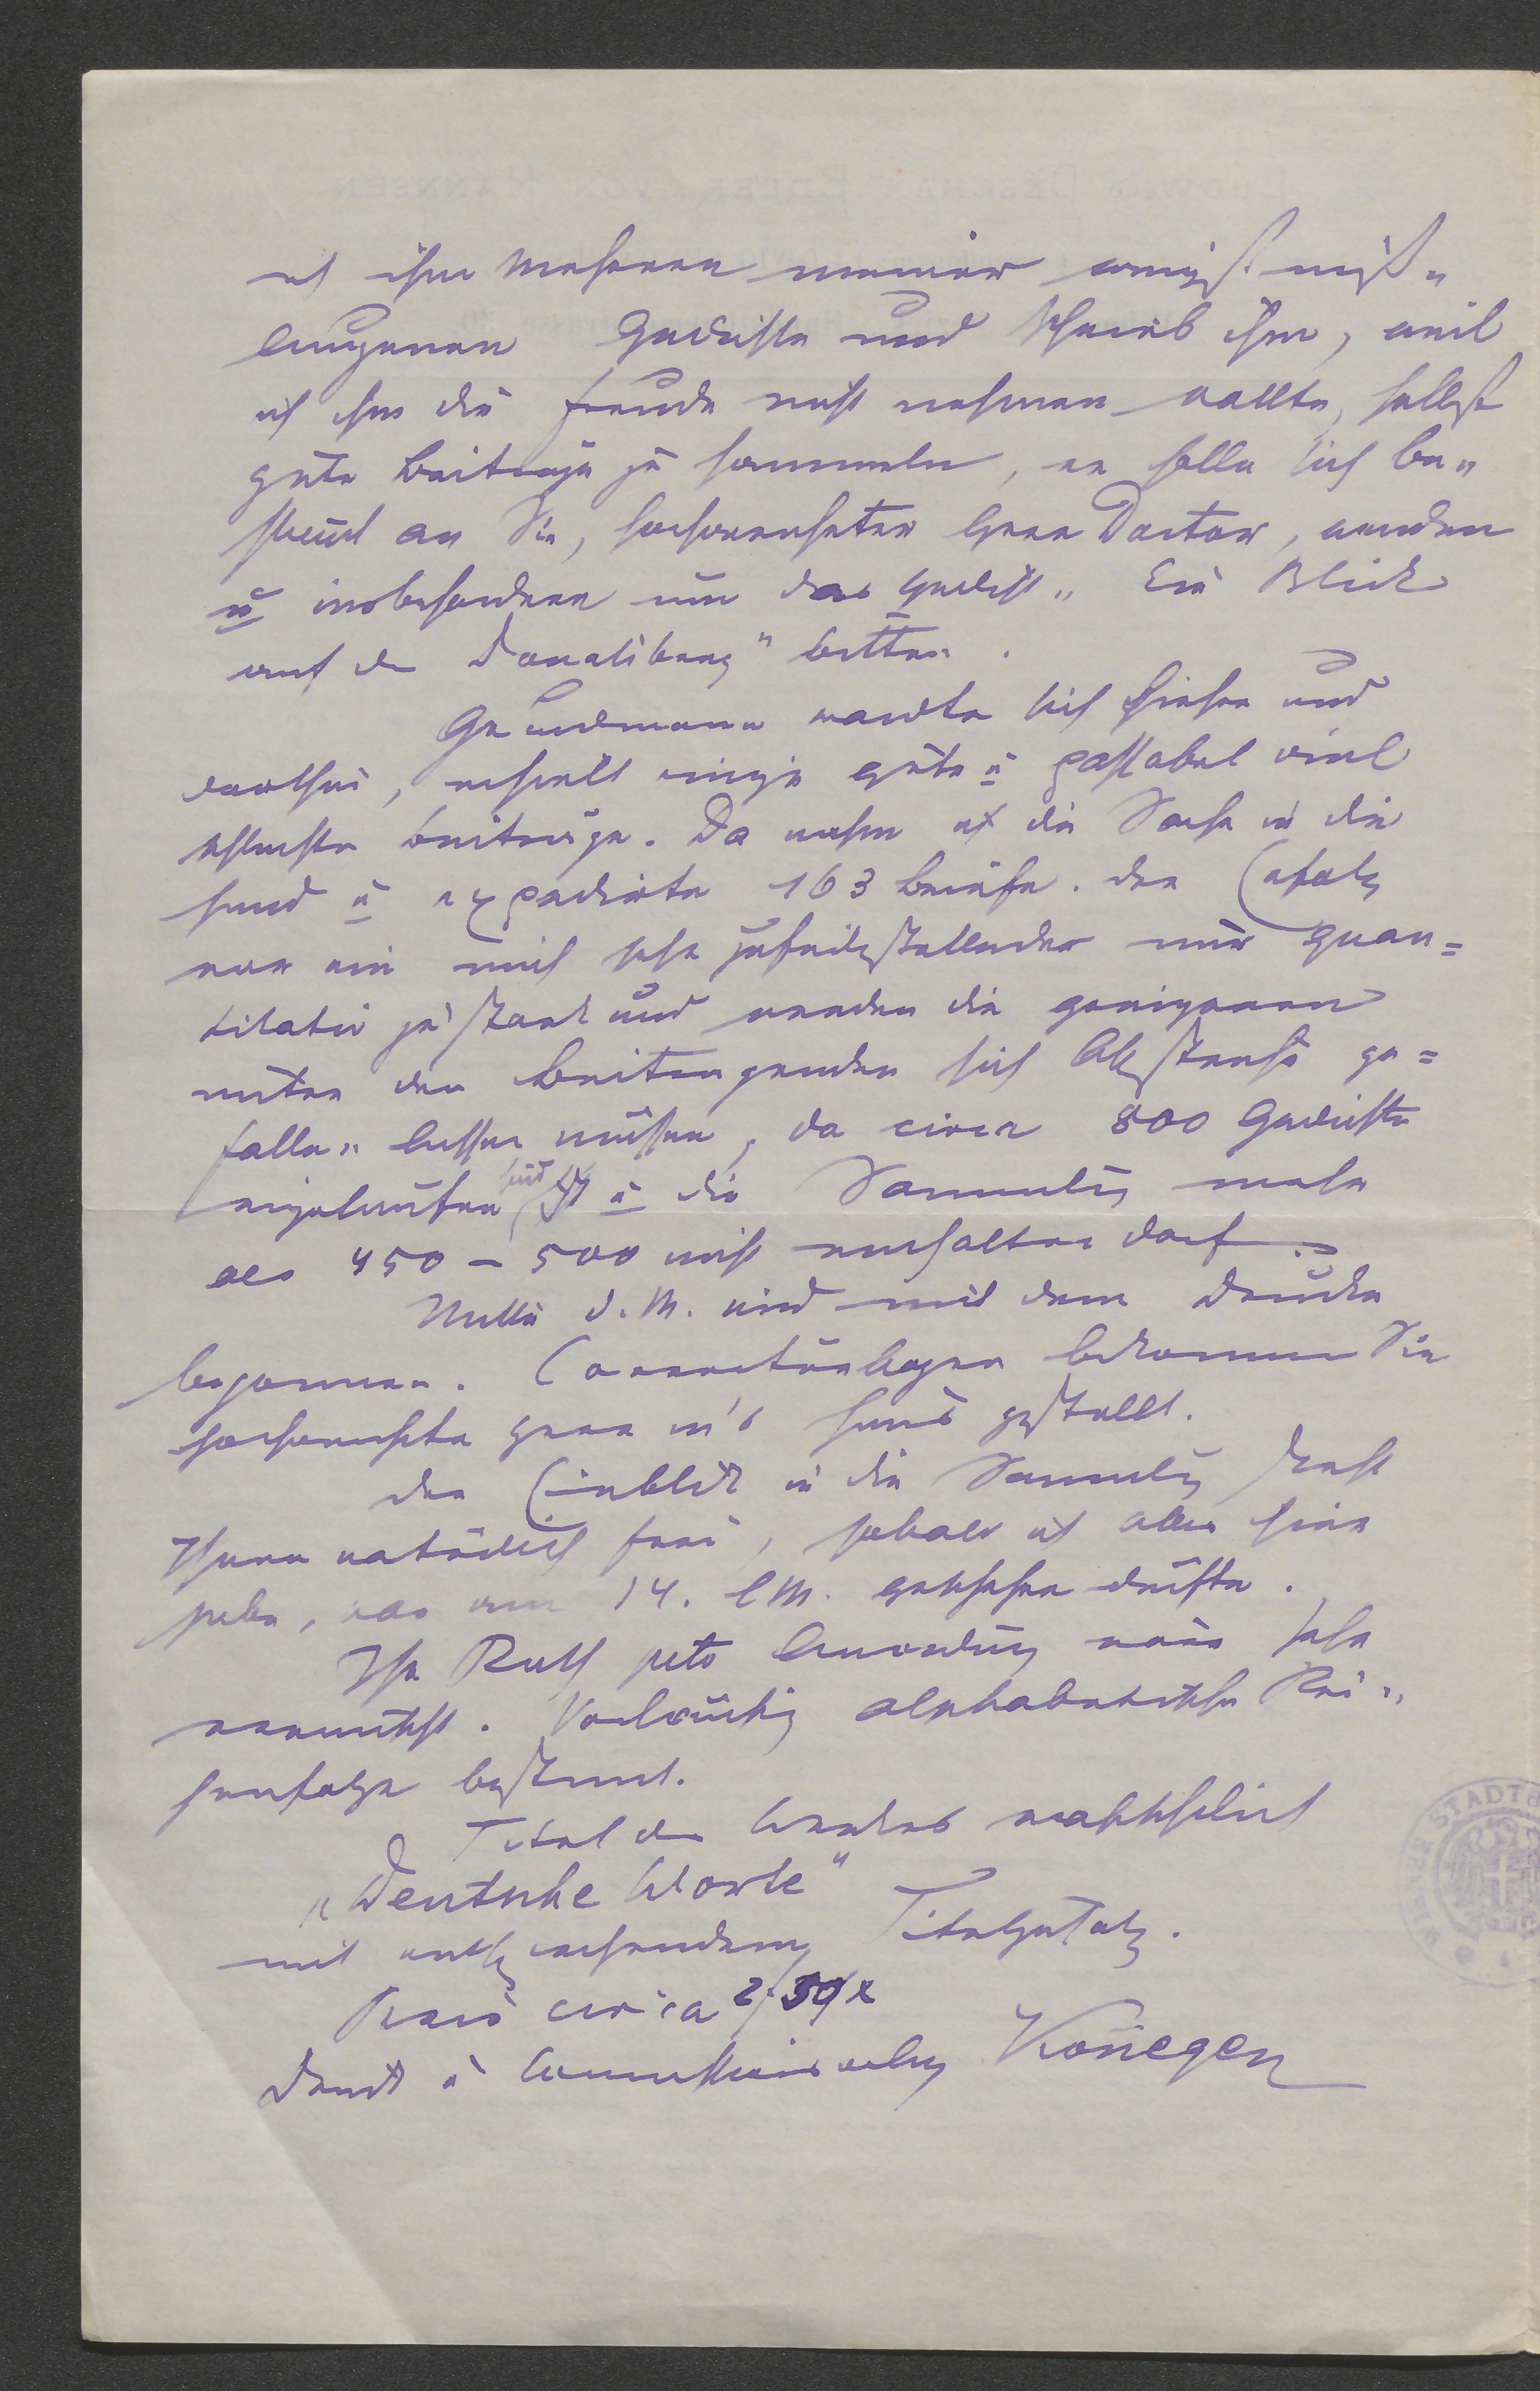 ich ihm mehrere meiner wenigst miß„
lungenen Gedichte und schrieb ihm, weil
ich ihm die Freude nicht nehmen wollte, selbst
gute Beiträge zu sammeln, er solle sich be„
stimmt an Sie, hochverehrter Herr Doctor, wenden
u insbesondere um das Gedicht „Ein Blick
auf den Donatiberg" bitten.
Grundmann wandte sich hierher und
dorthin, erhielt einige gute u passabel viel
schlechte Beiträge. Da nahm ich die Sache in die
Hand u expedierte 163 Briefe. Der Erfolg
war ein mich sehr zufriedenstellender nur quan=
titativ zu stark und werden die geringeren
unter den Beitragenden sich Abstriche ge=
fallen lassen müssen, da circa 800 Gedichte
eingelaufen sind u die Sammlung mehr
als 450 – 500 nicht enthalten darf.
Mitte d. M. wird mit dem Drucke
begonnen. Correcturbogen bekommen Sie
hochverehrter Herr in's Haus gestellt.
Der Einblick in die Sammlung steht
Ihnen natürlich frei, sobald ich alles hier
habe, was am 14. l M. geschehen dürfte.
Ihr Rath puto Anordnung wäre sehr
erwünscht. Vorläufig alphabetische Rei„
henfolge bestimmt.
Titel des Werkes wahrscheinlich
„Deutsche Worte"
mit entsprechendem Titelzusatz.
Preis circa 2 f 50 x
Druck u Commissionsverlag Konegen